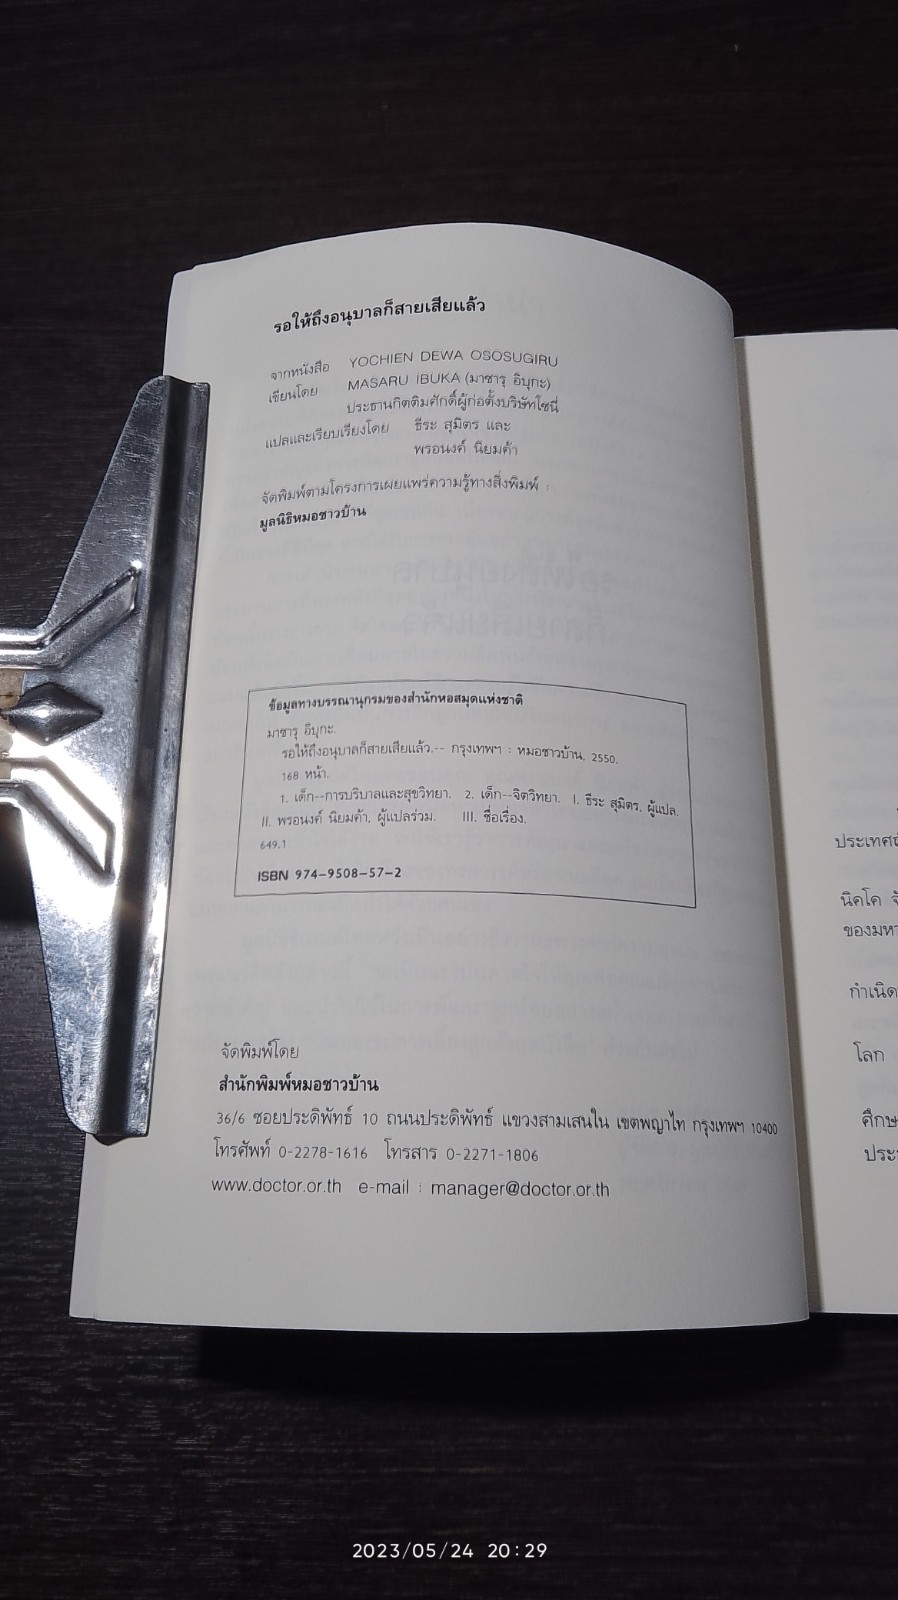 รอให้ถึงอนุบาลก็สายเสียแล้ว
จากหนังสือ YOCHIEN DEWA OSOSUGIRU
เขียนโดย MASARU IBUKA (มาซารุ อิบุกะ)
ประธานกิตติมศักดิ์ผู้ก่อตั้งบริษัทโซนี่
แปลและเรียบเรียงโดย ธีระ สุมิตร และ
พรอนงค์ นิยมค้า
จัดพิมพ์ตามโครงการเผยแพร่ความรู้ทางสิ่งพิมพ์ :
มูลนิธิหมอชาวบ้าน
ข้อมูลทางบรรณานุกรมของสำนักหอสมุดแห่งชาติ
มาซารุ อิบุกะ.
รอให้ถึงอนุบาลก็สายเสียแล้ว.-- กรุงเทพฯ : หมอชาวบ้าน, 2550.
168 หน้า.
1. เด็ก--การบริบาลและสุขวิทยา. 2. เด็ก--จิตวิทยา. I. ธีระ สุมิตร, ผู้แปล.
II. พรอนงค์ นิยมค้า, ผู้แปลร่วม. III. ชื่อเรื่อง.
649.1
ISBN 974-9508-57-2
จัดพิมพ์โดย
สำนักพิมพ์หมอชาวบ้าน
36/6 ซอยประดิพัทธ์ 10 ถนนประดิพัทธ์ แขวงสามเสนใน เขตพญาไท กรุงเทพฯ 10400
โทรศัพท์ 0-2278-1616 โทรสาร 0-2271-1806
www.doctor.or.th e-mail : manager@doctor.or.th
นิคโค
ของมหา
กำเนิด
โลก
2023/05/24 20:29